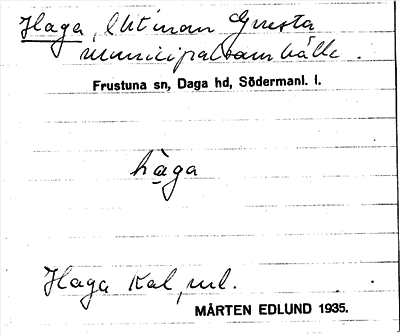 Haga, lht inom Gnesta
municipalsamhälle.
Frustuna sn, Daga hd, Södermanl. l.
hàga
Haga Kal, ul.
MÅRTEN EDLUND 1935.